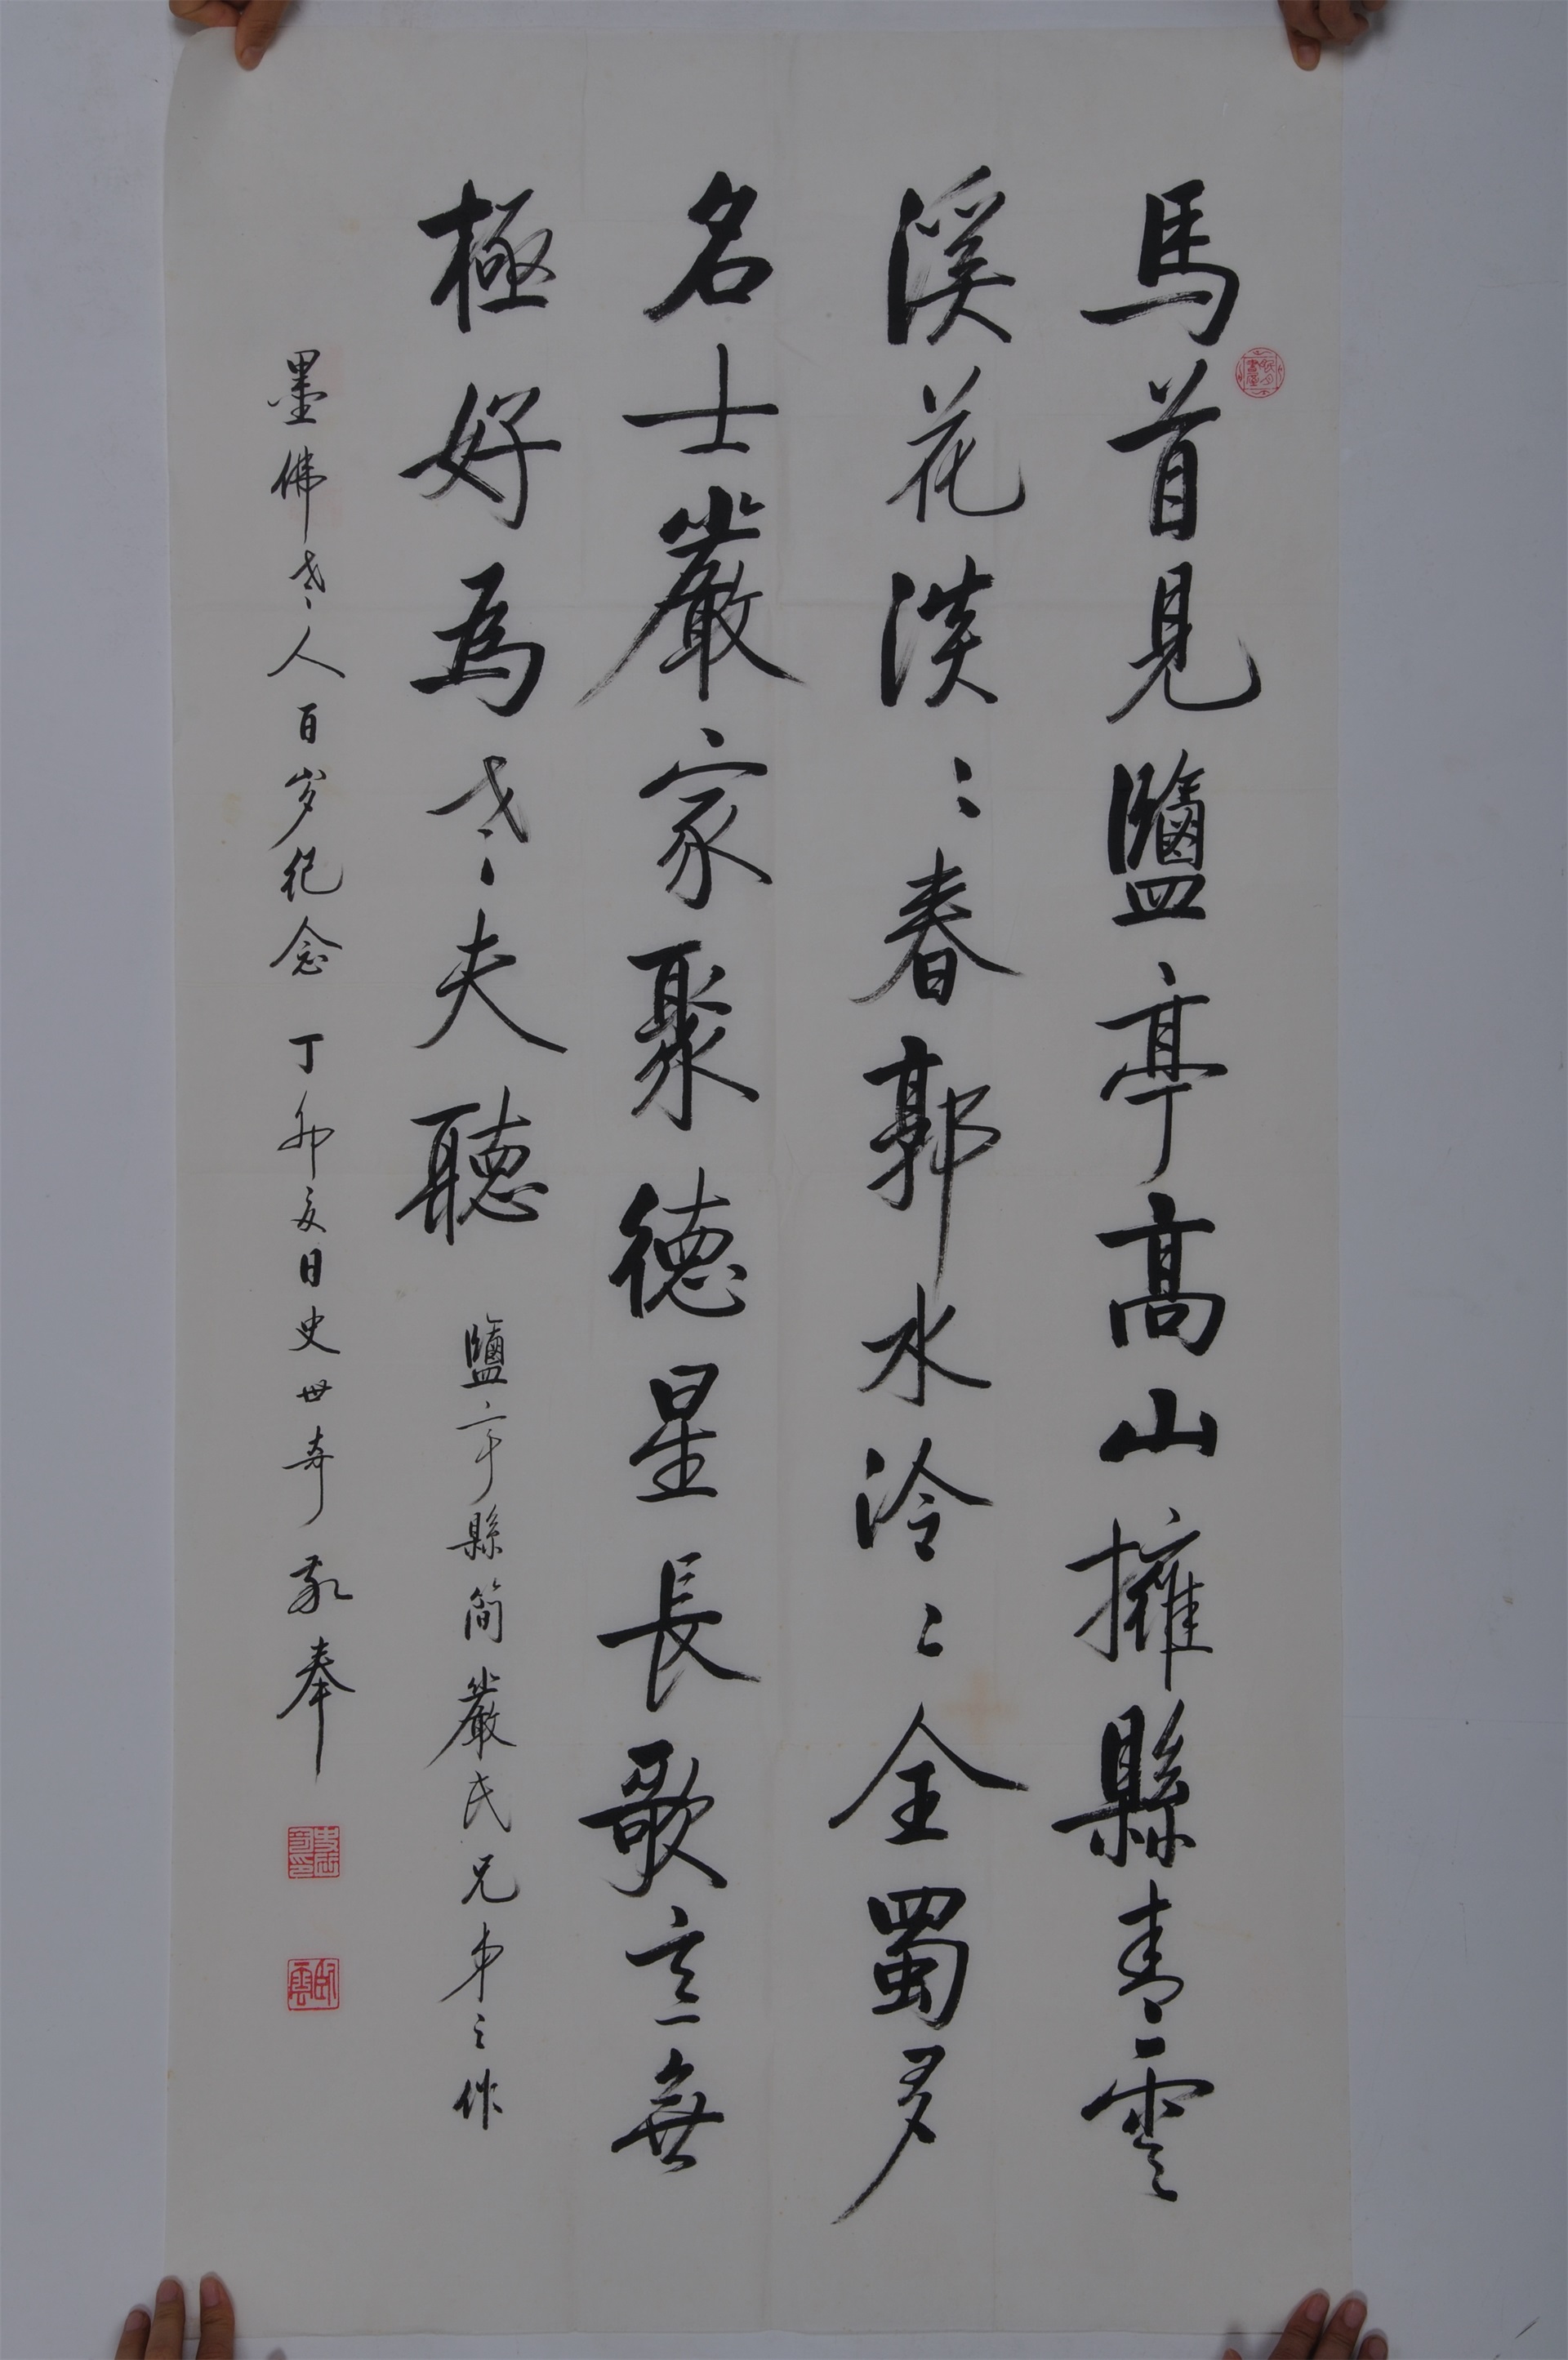 馬首見鹽亭高山擁縣青雲
溪花淡〻春郭水泠〻全蜀多
名士嚴家聚德星長歌意無
極好為老夫聽
鹽亭縣簡嚴氏兄弟之作
墨佛老人百岁纪念 丁卯夏日史世奇敬奉
史世奇印
臥雲